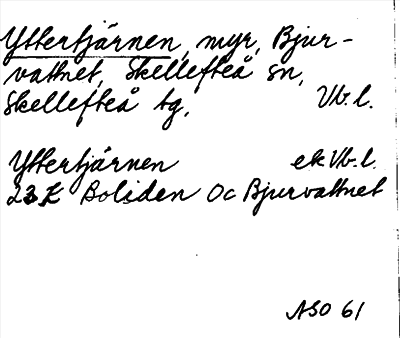 Yttertjärnen, myr, Bjur-
vattnet, Skellefteå sn,
Skellefteå tg, Vb. l.
Yttertjärnen ek Vb. l.
23 K Boliden Oc Bjurvattnet
ASO 61